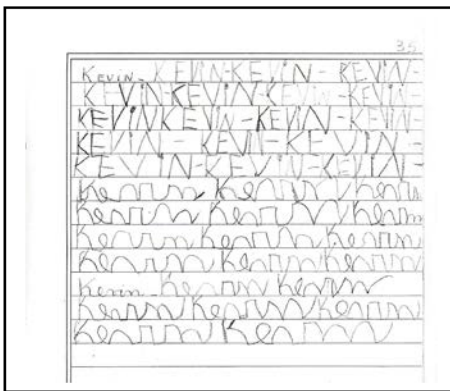 35
Kevin - KEVIN-KEVIN - KEVIN-
KEVIN-KEVIN-KEVIN-KEVIN-
KEVINKEVIN-KEVIN-KEVIN-
KEVIN - KEVIN-KEVIN-
KEVIN-KEVIN-KEVIN-
Kevin Kevin Kevin
Kevin Kevin Kevin
Kevin Kevin Kevin
Kevin Kevin Kevin
Kevin - Kevin Kevin
Kevin Kevin Kevin
Kevin Kevin